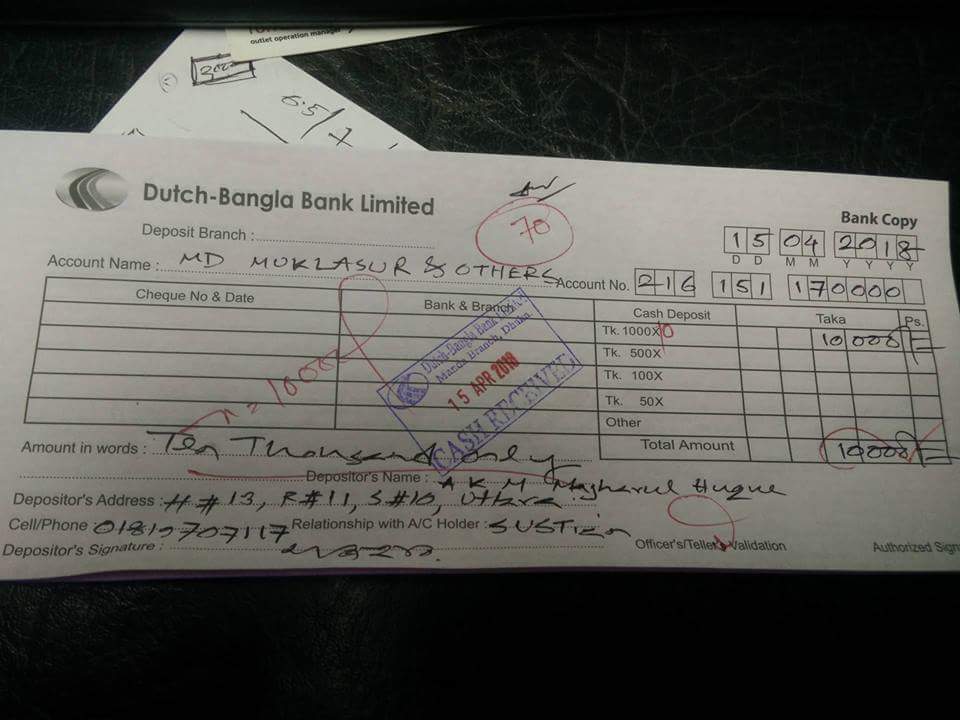 outlet operation manager
200
6.5/7
Dutch-Bangla Bank Limited
70
Bank Copy
Deposit Branch :
15 04 2018
D D M M Y Y Y Y
Account Name : MD MUKLASUR & OTHERS Account No. 216 151 170000
Cheque No & Date Bank & Branch Cash Deposit Taka Ps.
Tk. 1000X 10 10000/=
Tk. 500X
Tk. 100X
Tk. 50X
Other
Total Amount 10000/=
Dutch-Bangla Bank Limited
Branch, Dhaka
15 APR 2018
CASH RECEIVED
Amount in words : Ten Thousand Only
Depositor's Name : A K M Mazharul Huque
Depositor's Address : H # 13, R # 11, S # 10, Uttara
Cell/Phone 01819707117 Relationship with A/C Holder : SUSTian
Depositor's Signature :
Officer's/Teller's Validation
Authorized Sign